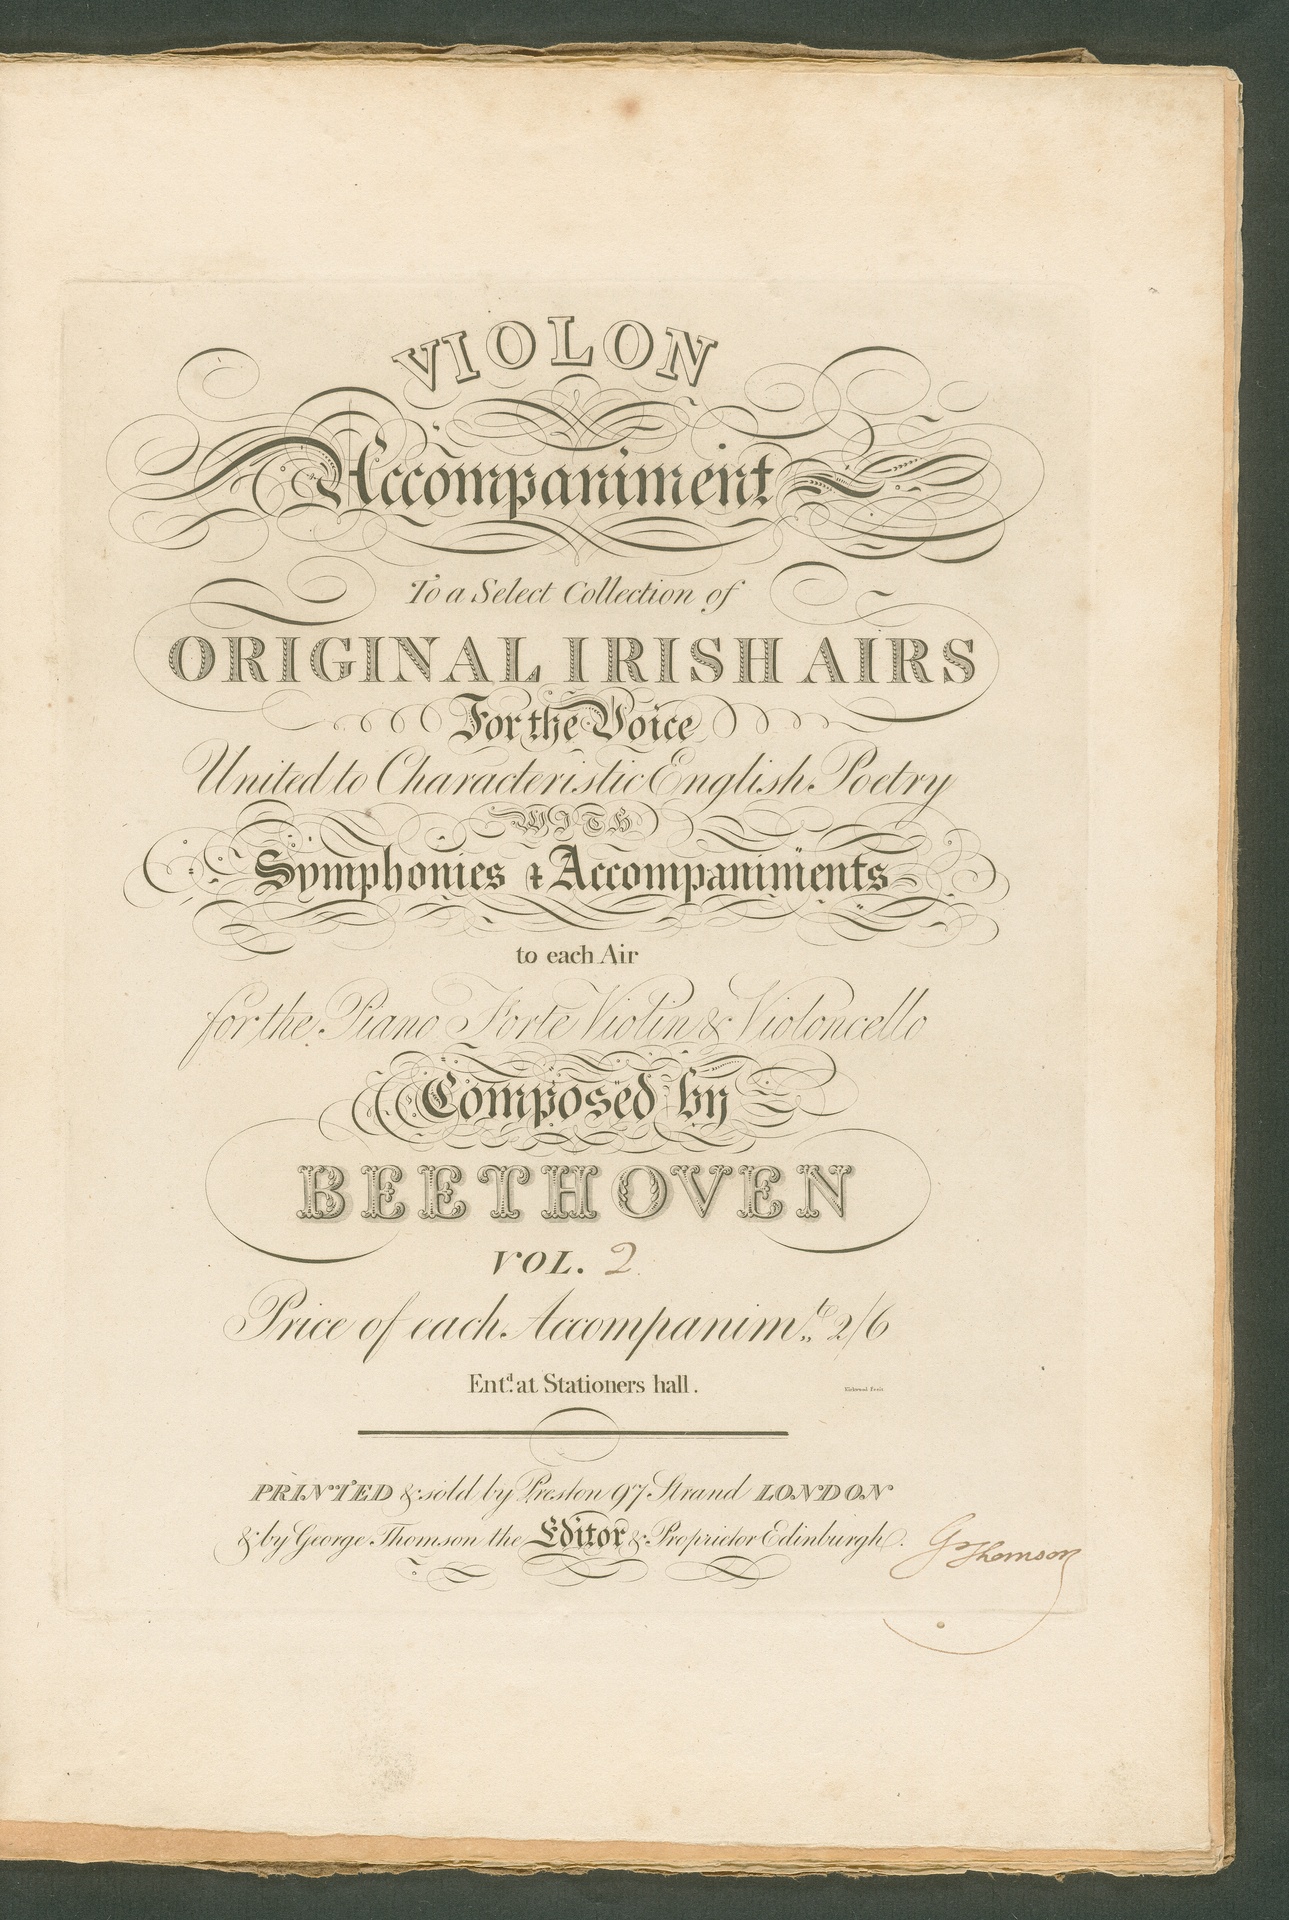 VIOLON
Accompaniment
To a Select Collection of
ORIGINAL IRISH AIRS
For the Voice
United to Characteristic English Poetry
WITH
Symphonies & Accompaniments
to each Air
for the Piano Forte Violin & Violoncello
Composed by
BEETHOVEN
VOL. 2
Price of each Accompanim.t 2/6
Entd. at Stationers hall.
Kirkwood Sculp.
PRINTED & sold by Preston 97 Strand LONDON
& by George Thomson the Editor & Proprietor Edinburgh.
G Thomson